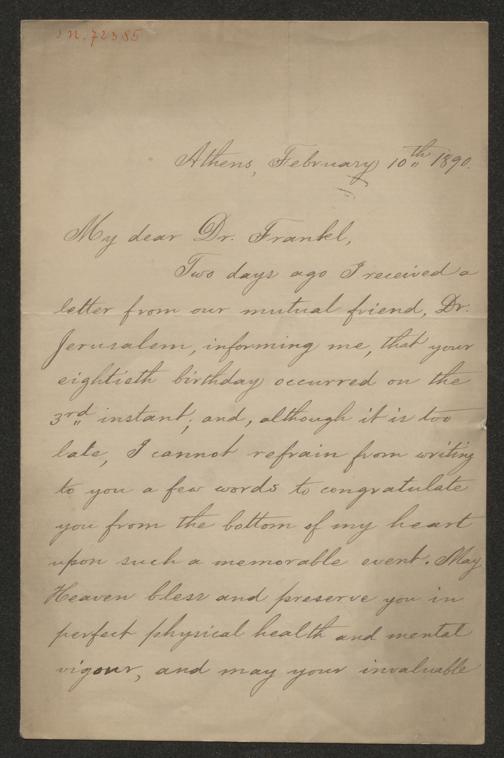 I.N. 72385
Athens, February 10th 1890.
My dear Dr. Frankl,
Two days ago I received a
letter from our mutual friend, Dr.
Jerusalem, informing me, that your
eightieth birthday occurred on the
3rd instant; and, although it is too
late, I cannot refrain from writing
to you a few words to congratulate
you from the bottom of my heart
upon such a memorable event. May
Heaven bless and preserve you in
perfect physical health and mental
vigour, and may your invaluable